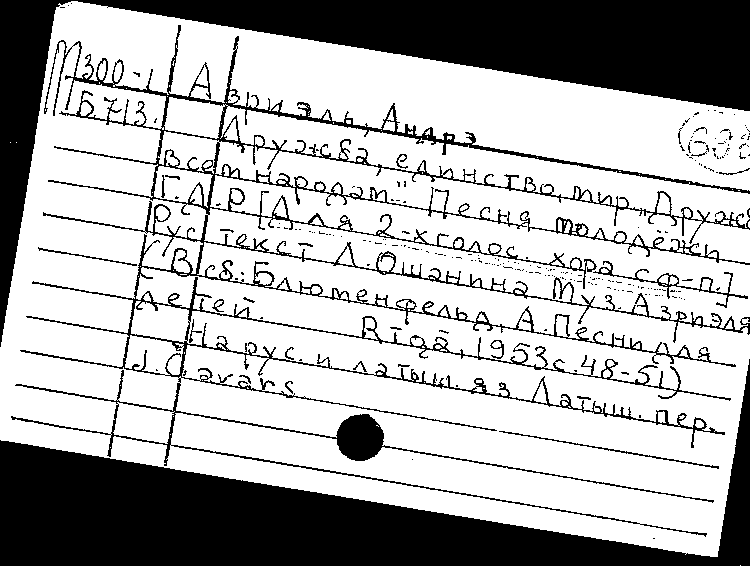 М300-1 Азриэль, Андрэ
Б713. Дружба, единство, мир. „Дружб
всем народам.." Песня молодёжи
Г.Д.Р [Для 2-х голос. хора с ф-п.]
Рус. текст Л. Ошанина Муз. Азриэля
(В сб.: Блюменфельд, А. Песни для
детей. Rīgā, 1953 с. 48-51)
На рус. и латыш. яз. Латыш. пер.
J. Čavārs